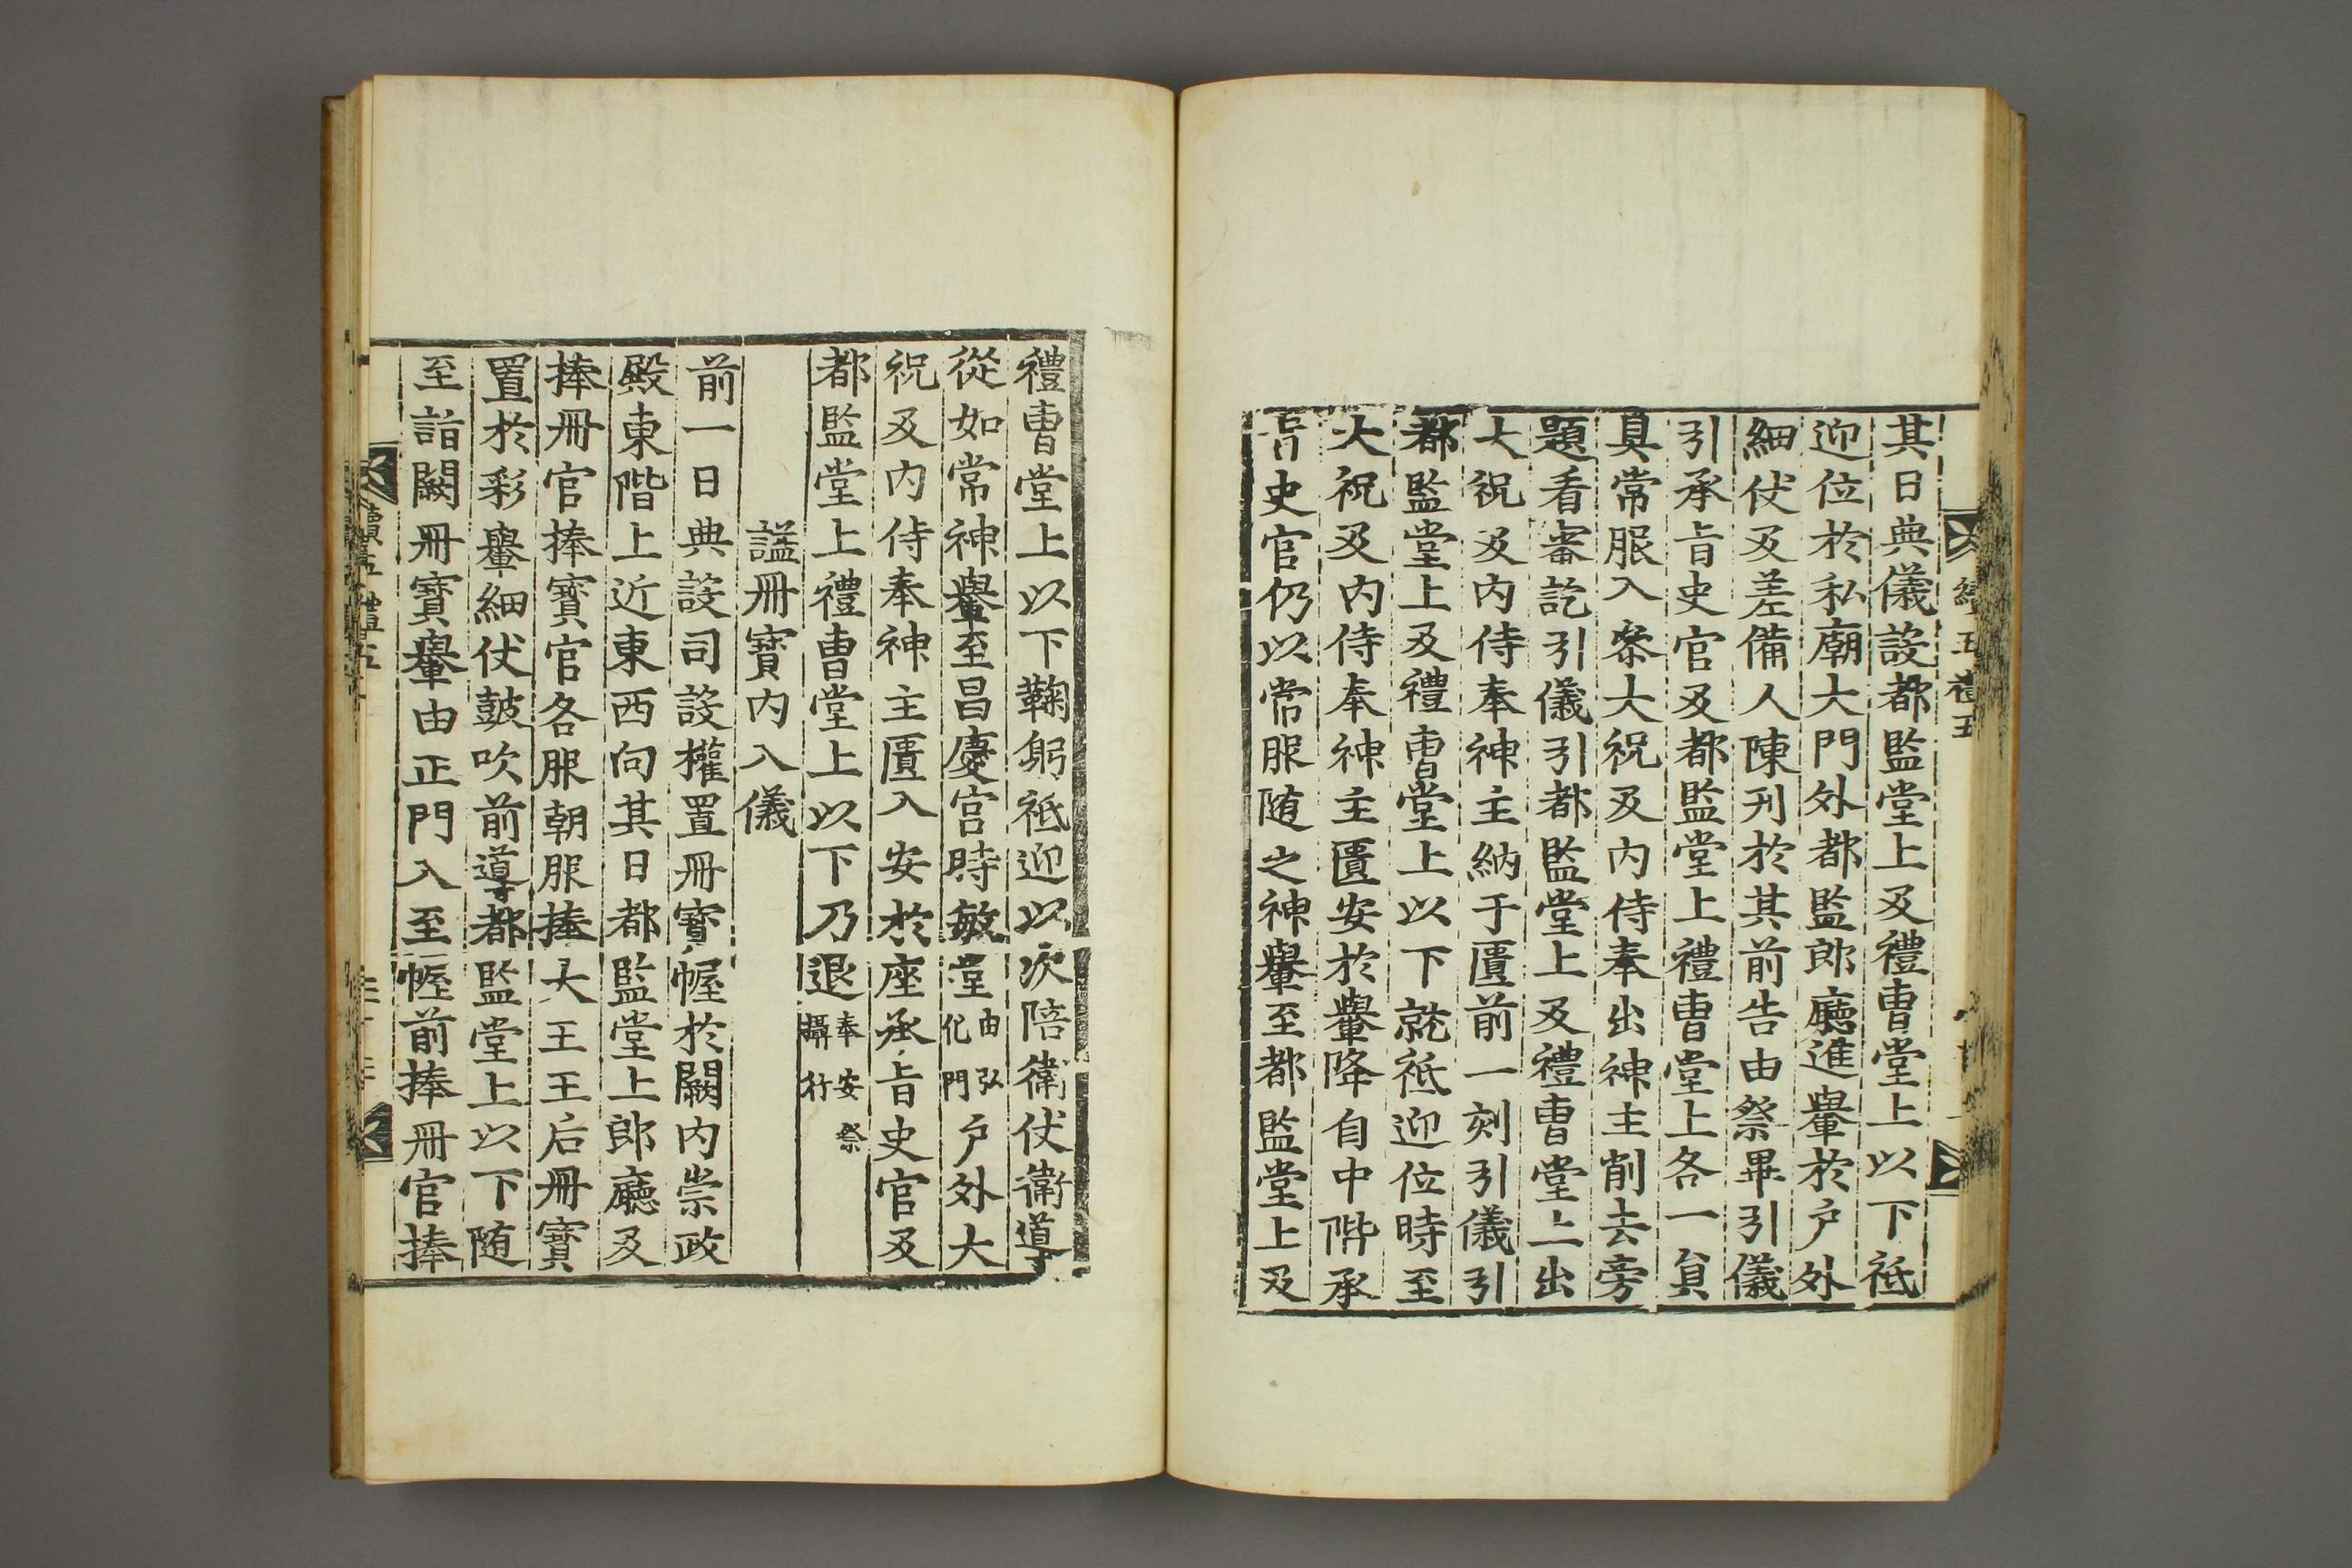 其日典儀設都監堂上及禮曹堂上以下祗
迎位於私廟大門外都監郎廳進轝於户外
細仗及差備人陳列於其前告由祭畢引儀
引承旨史官及都監堂上禮曹堂上各一貟
具常服入參大祝及内侍奉出神主削去旁
題看審訖引儀引都監堂上及禮曹堂上出
大祝及内侍奉神主納于匱前一刻引儀引
都監堂上及禮曹堂上以下就祗迎位時至
大祝及内侍奉神主匱安於轝降自中階承
旨史官仍以常服随之神轝至都監堂上及
禮曹堂上以下鞠躬祗迎以次陪衛仗衛導
從如常神轝至昌慶宮時敏堂由弘化門户外大
祝及内侍奉神主匱入安於座承旨史官及
都監堂上禮曹堂上以下乃退奉安祭攝行
謚冊寶内入儀
前一日典設司設權置冊寶幄於闕内崇政
殿東階上近東西向其日都監堂上郎廳及
捧冊官捧寶官各服朝服捧大王王后冊寶
置於彩轝細仗鼓吹前導都監堂上以下随
至詣闕冊寶轝由正門入至幄前捧冊官捧
續五禮五